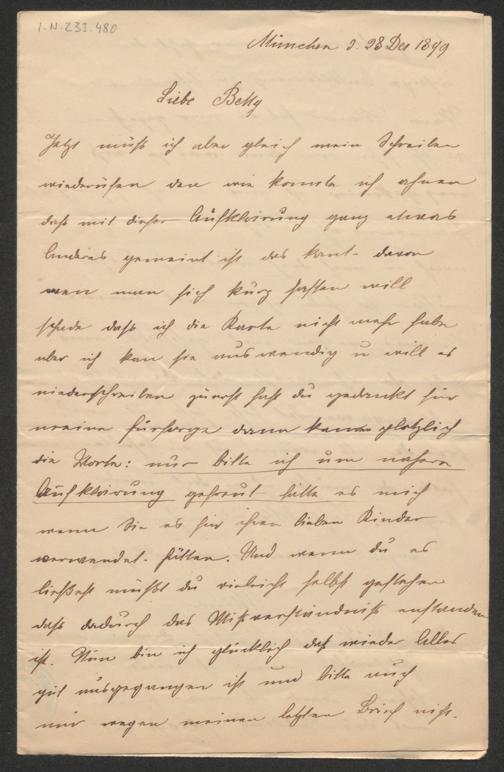 I.N. 233.480
München d. 28 Dez 1899
Liebe Betty
Jetzt muß ich aber gleich mein Schreiben
wiederrufen den wie konnte ich ahnen
daß mit dieser Aufklärung ganz etwas
Anderes gemeint ist das komt davon
wen man sich kurz fassen will
schade daß ich die Karte nicht mehr habe
aber ich kan sie auswendig u will es
niederschreiben zuerst hast du gedankt für
meine fürsorge dann kamen plötzlich
die Worte: nur bitte ich um nähere
Aufklärung gefreut hätte es mich
wenn Sie es für ihren lieben Kinder
verwendet hätten. Und wenn du es
ließest müßt du vieleicht selbst gestehen
daß dadurch das Mißverständniß enstanden
ist. Nun bin ich glücklich daß wieder Alles
gut ausgegangen ist und bitte auch
mir wegen meinen letzten Brief nicht.